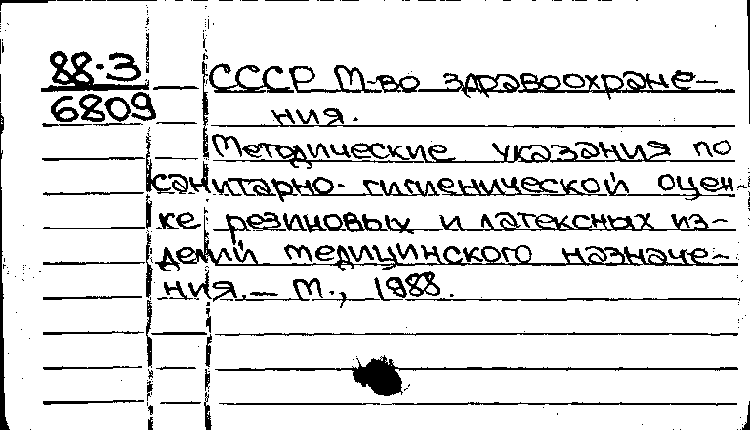 88-3
6809
СССР М-во здравоохране-
ния.
Методические указания по
санитарно-гигиенической оцен-
ке резиновых и латексных из-
делий медицинского назначе-
ния. — М., 1988.